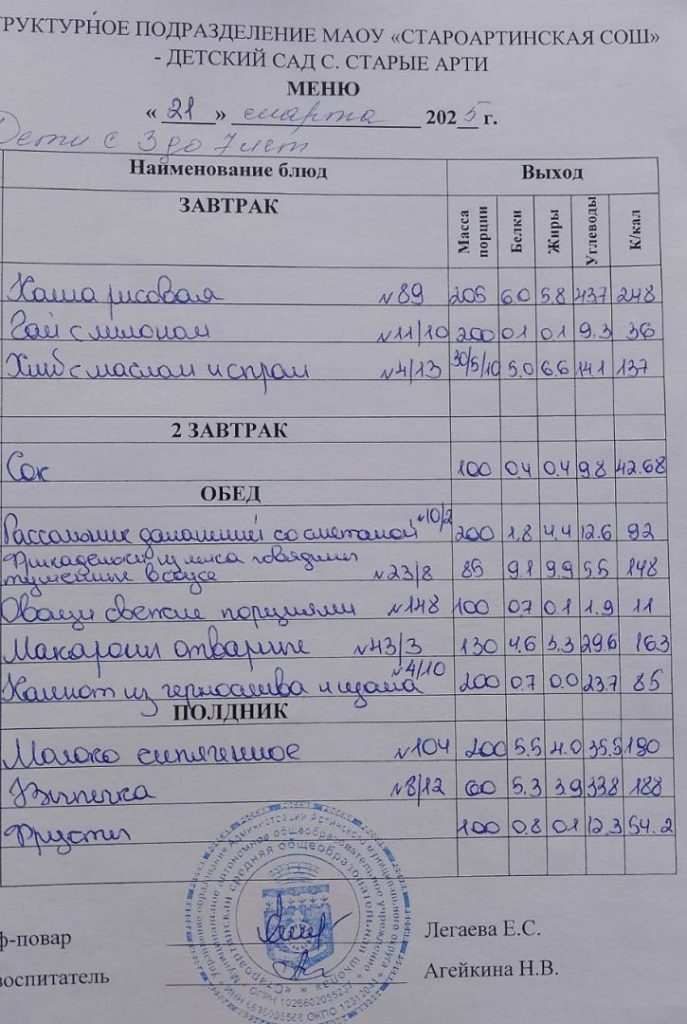 ТРУКТУРНОЕ ПОДРАЗДЕЛЕНИЕ МАОУ «СТАРОАРТИНСКАЯ СОШ»
- ДЕТСКИЙ САД С. СТАРЫЕ АРТИ
МЕНЮ
« 21 » марта 2025 г.
Дети с 3 до 7 лет
Наименование блюд Выход
ЗАВТРАК Масса порции Белки Жиры Углеводы К/кал
Каша рисовая №89 205 6.0 5.8 43.7 248
Чай с лимоном №11/10 200 0.1 0.1 9.3 36
Хлеб с маслом и сыром №4/13 30/5/10 5.0 6.6 14.1 137
2 ЗАВТРАК
Сок 100 0.4 0.4 9.8 42.68
ОБЕД
Рассольник домашний со сметаной №10/2 200 1.8 4.4 12.6 92
Фрикадельки из мяса говядины
тушенные в соусе №23/8 85 9.1 9.9 5.5 148
Овощи свежие порциями №148 100 0.7 0.1 1.9 11
Макароны отварные №43/3 130 4.6 5.3 29.6 163
Компот из чернослива и изюма №4/10 200 0.7 0.0 23.7 85
ПОЛДНИК
Молоко кипяченное №104 200 5.5 4.0 35.5 190
Выпечка №8/12 60 5.3 3.9 33.8 188
Фрукты 100 0.8 0.1 12.3 54.2
ф-повар Легаева Е.С.
воспитатель Агейкина Н.В.